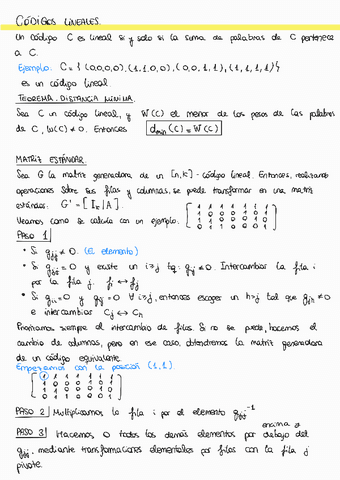 CÓDIGOS LINEALES.
Un código C es lineal si y solo si la suma de palabras de C pertenece
a C.
Ejemplo. C = { (0,0,0,0), (1,1,0,0), (0,0,1,1), (1,1,1,1) }
es un código lineal
TEOREMA. DISTANCIA MÍNIMA.
Sea C un código lineal, y W(C) el menor de los pesos de las palabras
de C, W(C) ≠ 0. Entonces dmin (C) = W(C)
MATRIZ ESTÁNDAR.
Sea G la matriz generadora de un [n,k] - código lineal. Entonces, realizando
operaciones sobre sus filas y columnas, se puede transformar en una matriz
estándar. G' = [ Ik | A ].
Veamos como se calcula con un ejemplo.
PASO 1
• Si gjj ≠ 0. (El elemento)
• Si gjj = 0 y existe un i>j tq. gij ≠ 0. Intercambiar la fila i
por la fila j. fi ↔ fj
• Si gjj = 0 y gij = 0 ∀ i>j, entonces escoger un h>j tal que gjh ≠ 0
e intercambiar Cj ↔ Ch
Priorizamos siempre el intercambio de filas. Si no se puede, hacemos el
cambio de columnas, pero en ese caso, obtendremos la matriz generadora
de un código equivalente.
Empezamos con la posición (1,1).
PASO 2 Multiplicamos la fila i por el elemento gjj⁻¹
PASO 3 Hacemos 0 todos los demás elementos por encima y debajo del
gjj, mediante transformaciones elementales por filas con la fila j
pivote.